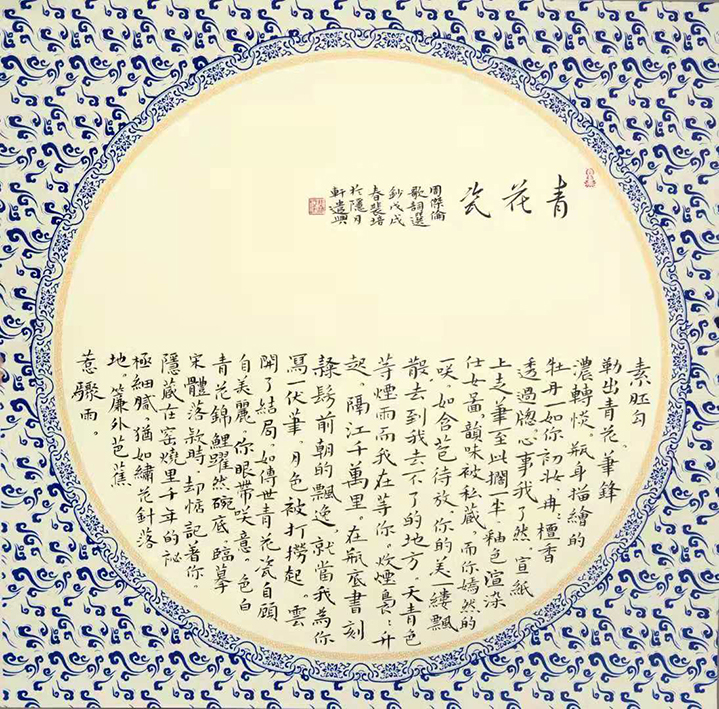 青花瓷
周傑倫
歌詞選
鈔戊戌
春裴培
於隱月
軒遣興
素胚勾
勒出青花、筆鋒
濃轉淡、瓶身描繪的
牡丹如你初妝、冉檀香
透過牕心事我了然、宣紙
上走筆至此擱一半、釉色渲染
仕女圖、韻味被私藏、而你嫣然的
一咲、如含苞待放、你的美一縷飄
散去到我去不了的地方。天青色
等煙雨而我在等你。炊煙裊：升
起、隔江千萬里。在瓶底書刻
隸髣前朝的飄逸、就當我為你
寫一伏筆、月色被打撈起。雲
開了結局、如傳世青花瓷自顧
自美麗、你眼帶咲意。色白
青花錦鯉躍然碗底、臨摹
宋體落款時却惦記着你
隱藏在窯燒里千年的祕
極細膩、猶如繡花針落
地、簾外芭蕉
惹驟雨。